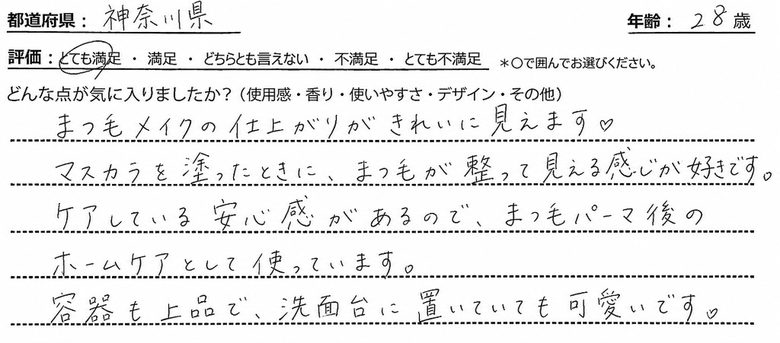 都道府県： 神奈川県 年齢： 28 歳
評価：とても満足 ・ 満足 ・ どちらとも言えない ・ 不満足 ・ とても不満足 ＊○で囲んでお選びください。
どんな点が気に入りましたか？（使用感・香り・使いやすさ・デザイン・その他）
まつ毛メイクの仕上がりがきれいに見えます♡
マスカラを塗ったときに、まつ毛が整って見える感じが好きです。
ケアしている安心感があるので、まつ毛パーマ後の
ホームケアとして使っています。
容器も上品で、洗面台に置いていても可愛いです。